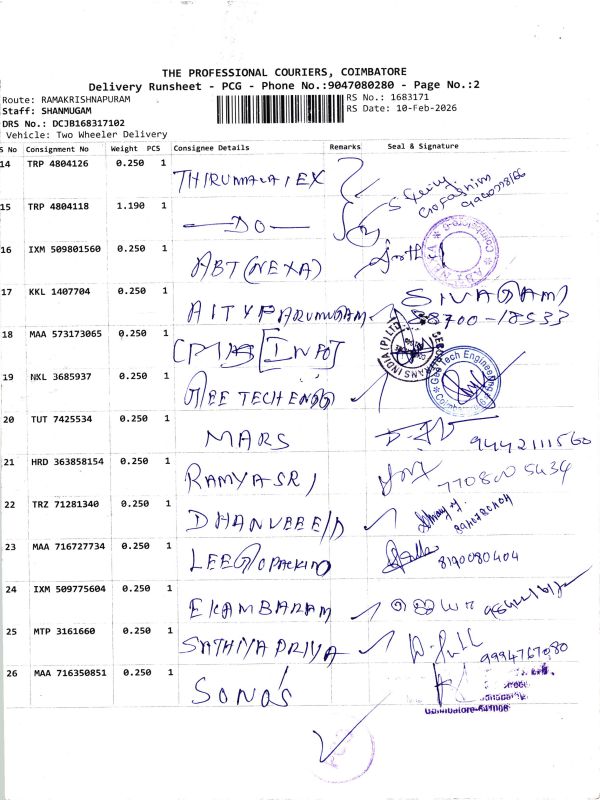 THE PROFESSIONAL COURIERS, COIMBATORE
Delivery Runsheet - PCG - Phone No.:9047080280 - Page No.:2
Route: RAMAKRISHNAPURAM
RS No.: 1683171
Staff: SHANMUGAM
RS Date: 10-Feb-2026
DRS No.: DCJB168317102
Vehicle: Two Wheeler Delivery
S No Consignment No Weight PCS Consignee Details Remarks Seal & Signature
14 TRP 4804126 0.250 1 THIRUMALAI EX
15 TRP 4804118 1.190 1 —DO—
16 IXM 509801560 0.250 1 ABT (NEXA)
17 KKL 1407704 0.250 1 SIVAGAMI
88700-18533
18 MAA 573173065 0.250 1
19 NXL 3685937 0.250 1 GEE TECH ENGG Geo Tech Engineering
20 TUT 7425534 0.250 1 MARS 9442111560
21 HRD 363858154 0.250 1 RAMYASRI 7708005434
22 TRZ 71281340 0.250 1
23 MAA 716727734 0.250 1 8190080404
24 IXM 509775604 0.250 1 EKAMBARAM
25 MTP 3161660 0.250 1 SATHIYAPRIYA 9994767080
26 MAA 716350851 0.250 1 SONA'S
Coimbatore-641006